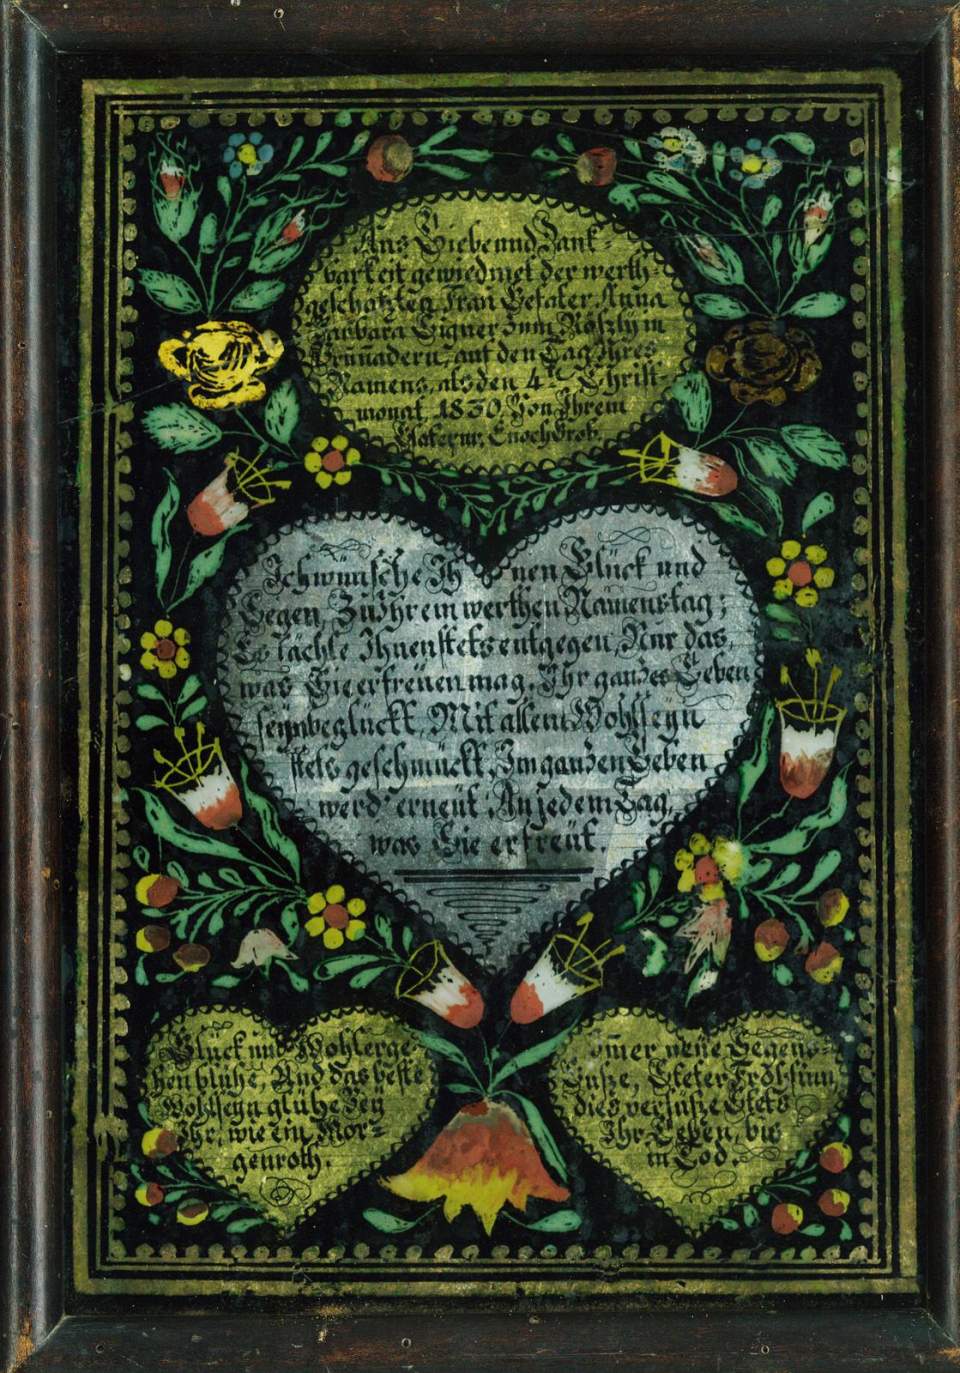 Aus Liebe und Dank-
barkeit gewiedmet der werth-
geschatzten Frau Gefater Anna
Barbara Signer zum Rößly in
Brunadern, auf den Tag Ihres
Namens, als den 4ten Christ-
monat 1830 Von Ihrem
Gefater Enoch Grob.
Ich wünsche Ihnen Glück und
Segen, Zu Ihrem werthen Namenstag;
Es lächle Ihnen stets entgegen, Nur das,
was Sie erfreuen mag. Ihr ganzes Leben
seyn beglückt, Mit allem Wohlseyn
stets geschmückt, Im ganzen Leben
werd' erneut, An jedem Tag,
was Sie erfreut.
Glück und Wohlerge-
hen blühe, Und das beste
Wohlseyn glühe Bey
Ihr, wie ein Mor-
genroth.
neue Segens-
Steter Frohsinn
dies versüße Stets
Ihr Leben, bis
in Tod.